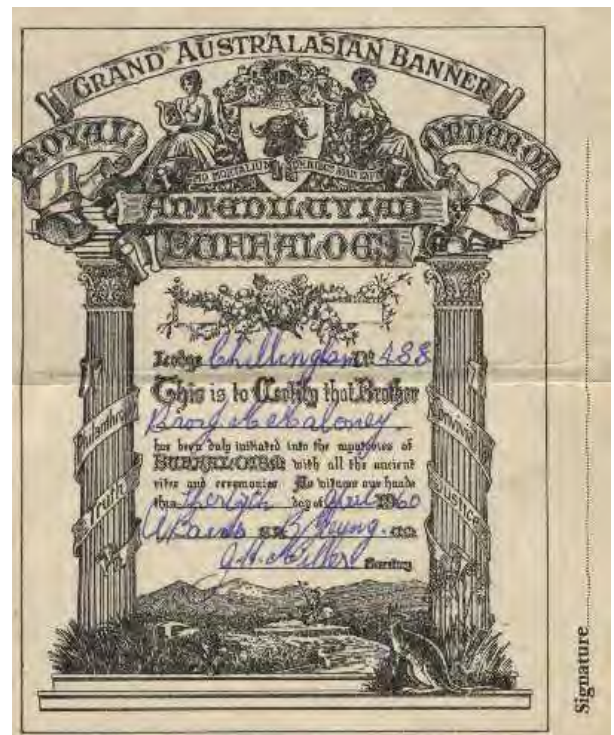 GRAND AUSTRALASIAN BANNER
ROYAL ORDER OF
NEMO MORTALIUM OMNIBUS HORIS SAPIT
ANTEDILUVIAN
BUFFALOES
Lodge Chillingham No 488
This is to Certify that Brother
McMaloney
has been duly initiated into the mysteries of
BUFFALOISM with all the ancient
rites and ceremonies. In witness our hands
this day of April 1960
Secretary
Philanthropy
Truth
Conviviality
Justice
Signature